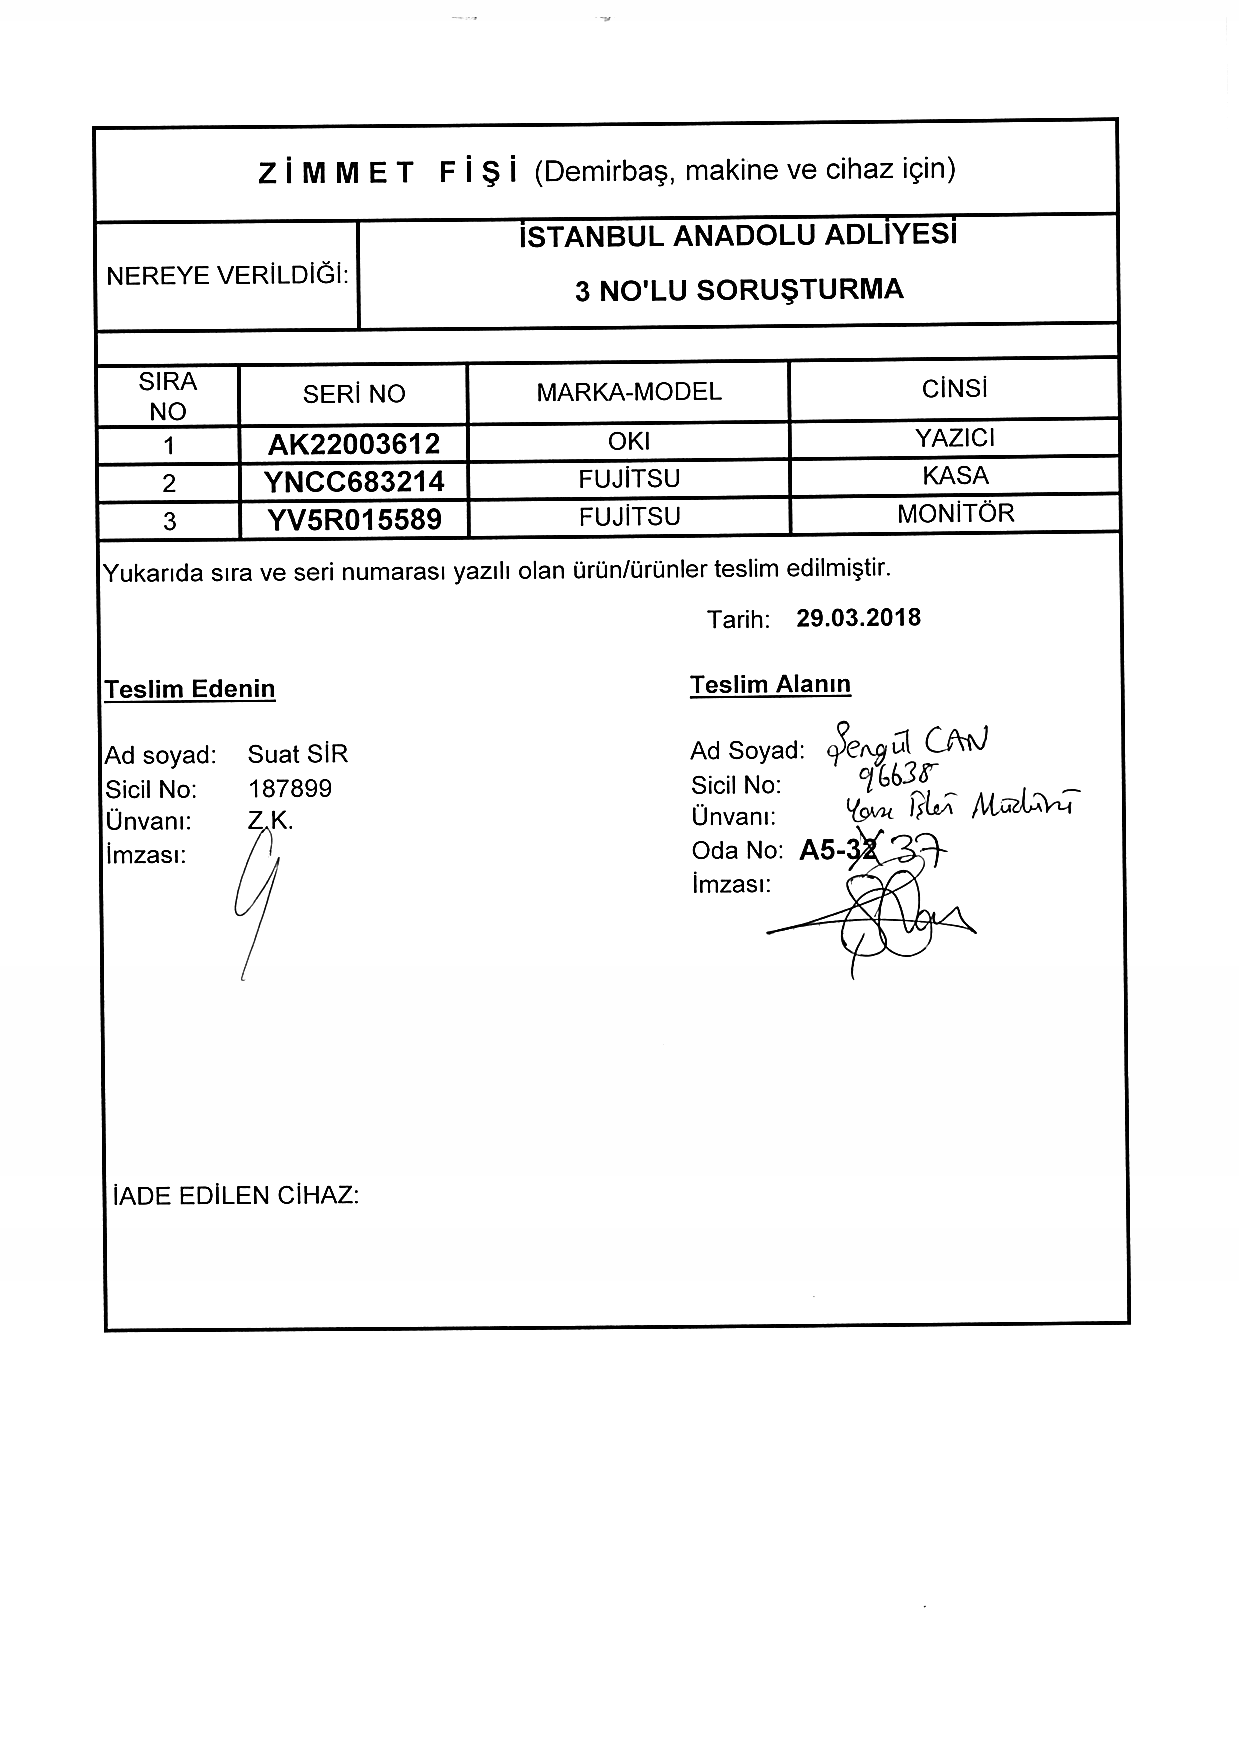 ZİMMET FİŞİ (Demirbaş, makine ve cihaz için)
NEREYE VERİLDİĞİ:
İSTANBUL ANADOLU ADLİYESİ
3 NO'LU SORUŞTURMA
SIRA NO SERİ NO MARKA-MODEL CİNSİ
1 AK22003612 OKI YAZICI
2 YNCC683214 FUJİTSU KASA
3 YV5R015589 FUJİTSU MONİTÖR
Yukarıda sıra ve seri numarası yazılı olan ürün/ürünler teslim edilmiştir.
Tarih: 29.03.2018
Teslim Edenin
Ad soyad: Suat SİR
Sicil No: 187899
Ünvanı: Z.K.
İmzası:
Teslim Alanın
Ad Soyad: Şengül CAN
Sicil No: 96638
Ünvanı: Yazı İşleri Müdürü
Oda No: A5-32 37
İmzası:
İADE EDİLEN CİHAZ: